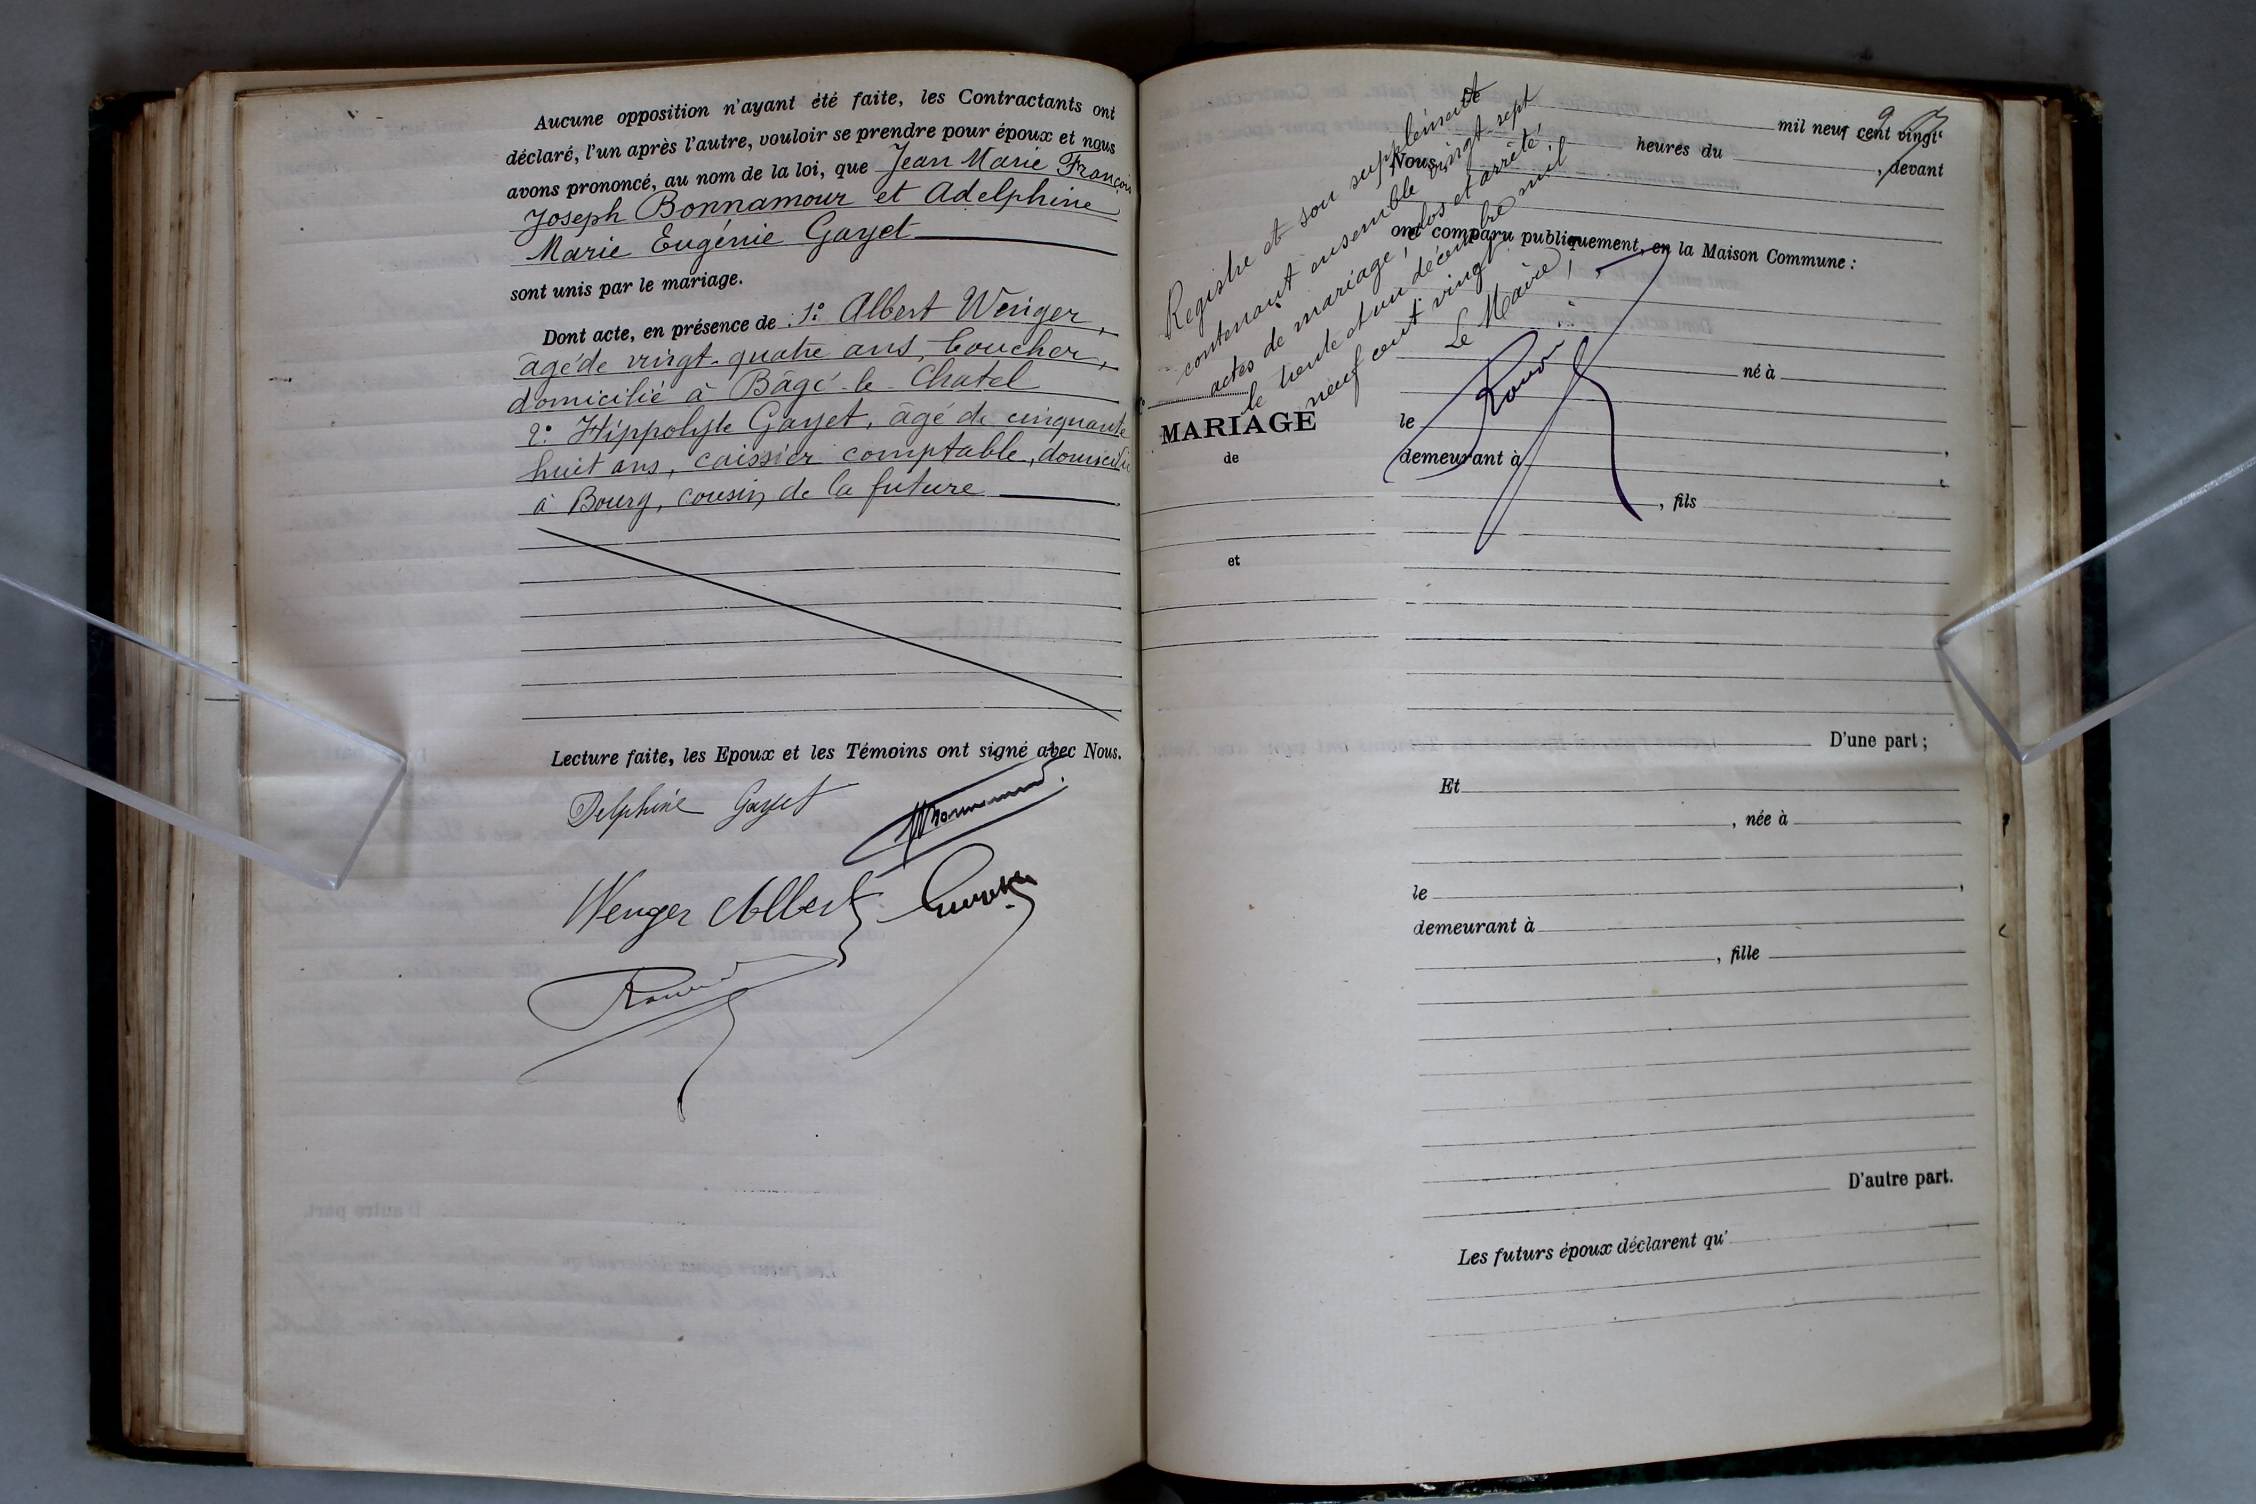 Aucune opposition n'ayant été faite, les Contractants ont
déclaré, l'un après l'autre, vouloir se prendre pour époux et nous
avons prononcé, au nom de la loi, que Jean Marie François
Joseph Bonnamour et Adelphine
Marie Eugénie Gayet
sont unis par le mariage.
Dont acte, en présence de : 1º Albert Wenger,
âgé de vingt-quatre ans, boucher,
domicilié à Bâgé-le-Chatel
2º Hippolyte Gayet, âgé de cinquante
huit ans, caissier comptable, domicilié
à Bourg, cousin de la future
Lecture faite, les Epoux et les Témoins ont signé avec Nous.
Delphine Gayet
Wenger Albert
Registre et son supplément
contenant ensemble vingt-sept
actes de mariage, clos et arrêté
le trente et un décembre mil
neuf cent vingt
Le Maire,
Le
mil neuf cent vingt
heures du , devant
Nous
ont comparu publiquement, en la Maison Commune :
né à
MARIAGE
de
et
le
demeurant à
, fils
D'une part ;
Et
, née à
le
demeurant à
, fille
D'autre part.
Les futurs époux déclarent qu'